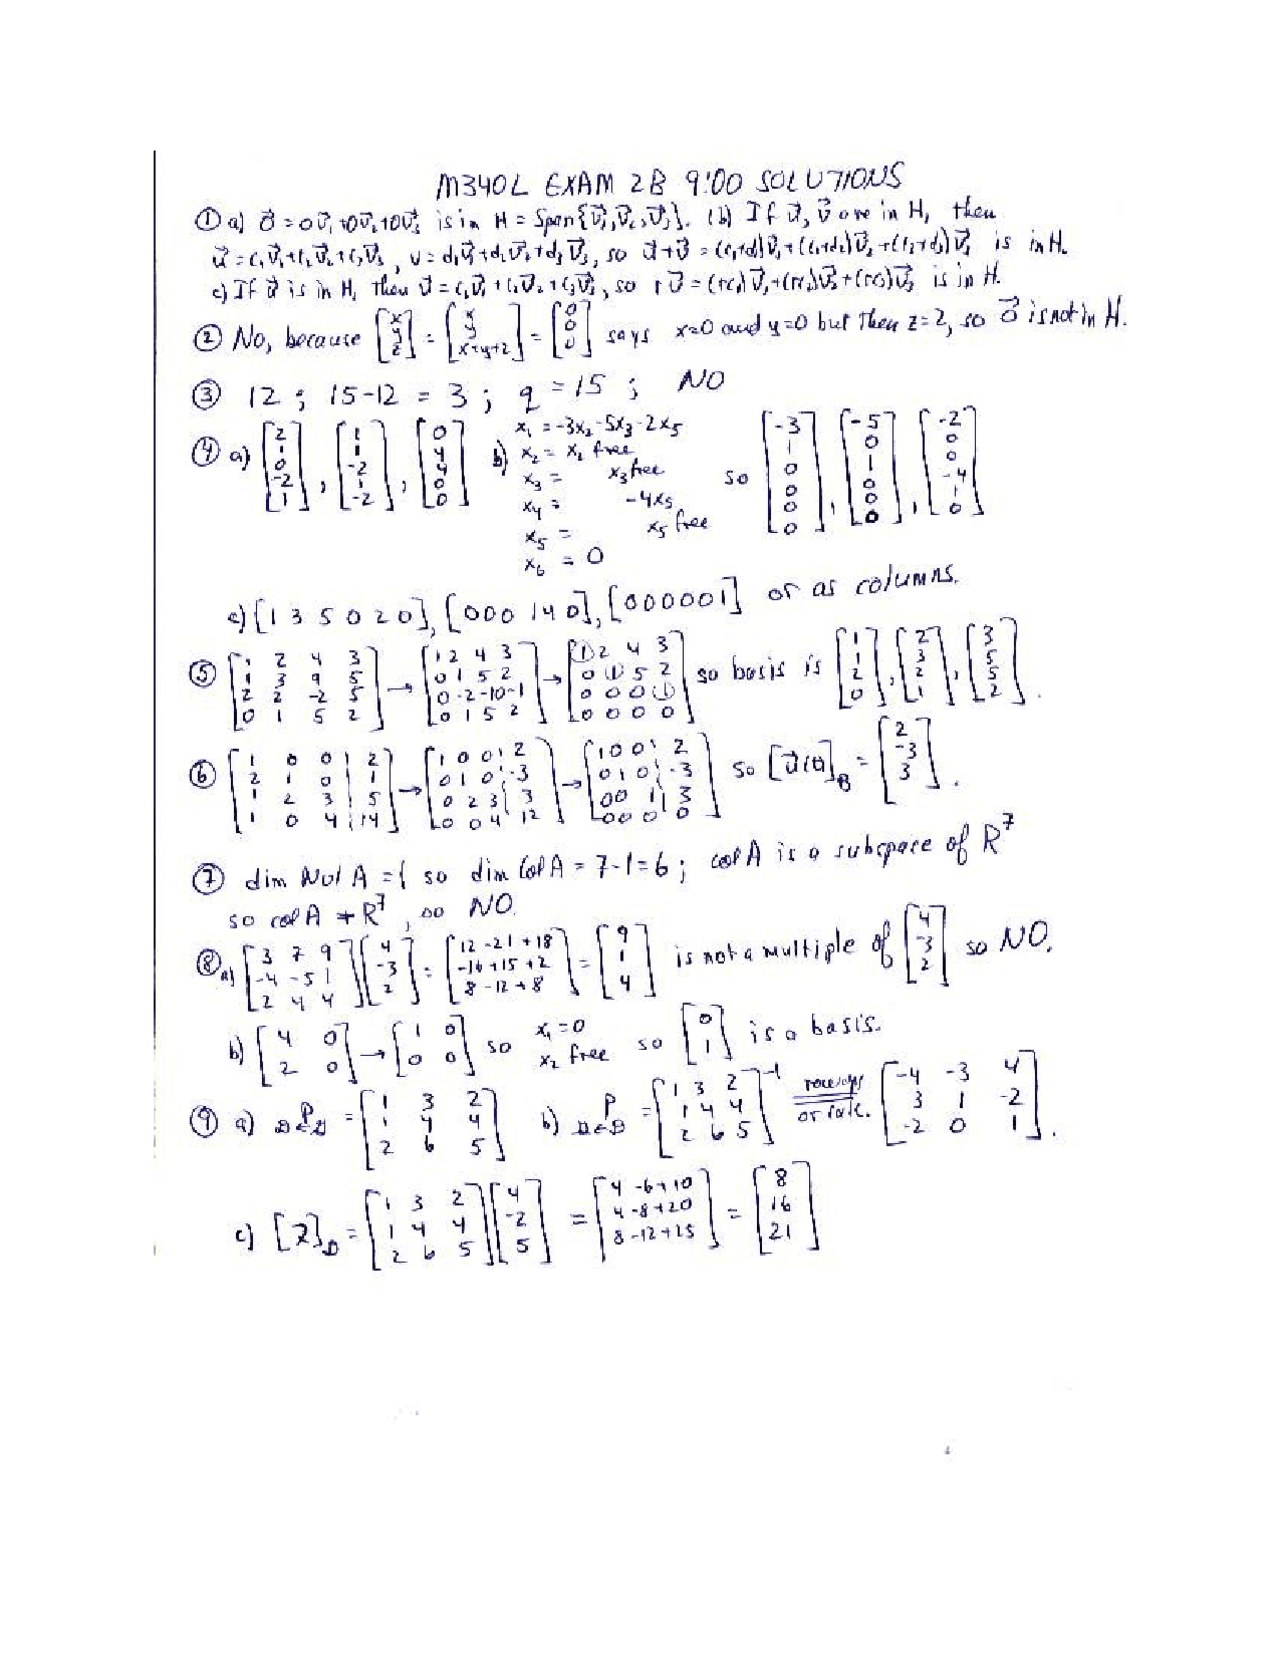 M340L EXAM 2B 9:00 SOLUTIONS
① a) 0⃗ = 0v⃗₁+0v⃗₂+0v⃗₃ is in H = Span{v⃗₁,v⃗₂,v⃗₃}. (b) If u⃗, v⃗ are in H, then
u⃗ = c₁v⃗₁+c₂v⃗₂+c₃v⃗₃, v = d₁v⃗₁+d₂v⃗₂+d₃v⃗₃, so u⃗+v⃗ = (c₁+d₁)v⃗₁+(c₂+d₂)v⃗₂+(c₃+d₃)v⃗₃ is in H.
c) If u⃗ is in H, then u⃗ = c₁v⃗₁+c₂v⃗₂+c₃v⃗₃, so ru⃗ = (rc₁)v⃗₁+(rc₂)v⃗₂+(rc₃)v⃗₃ is in H.
② No, because [x y z] = [x y x+y+2] = [0 0 0] says x=0 and y=0 but then z=2, so 0⃗ is not in H.
③ 12 ; 15-12 = 3 ; q = 15 ; NO
④ a) [2 1 0 -2 1], [1 1 -2 1 -2], [0 4 4 0 0] b) x₁ = -3x₂-5x₃-2x₅
x₂ = x₂ free
x₃ = x₃ free
x₄ = -4x₅
x₅ = x₅ free
x₆ = 0
so [-3 1 0 0 0 0], [-5 0 1 0 0 0], [-2 0 0 -4 1 0]
c) [1 3 5 0 2 0], [0 0 0 1 4 0], [0 0 0 0 0 1] or as columns.
⑤ [1 2 4 3
1 3 9 5
2 2 -2 5
0 1 5 2] → [1 2 4 3
0 1 5 2
0 -2 -10 -1
0 1 5 2] → [① 2 4 3
0 ① 5 2
0 0 0 ①
0 0 0 0] so basis is [1 1 2 0], [2 3 2 1], [3 5 5 2].
⑥ [1 0 0 | 2
2 1 0 | 1
1 2 3 | 5
1 0 4 | 14] → [1 0 0 | 2
0 1 0 | -3
0 2 3 | 3
0 0 4 | 12] → [1 0 0 | 2
0 1 0 | -3
0 0 1 | 3
0 0 0 | 0] so [ ]_B = [2 -3 3].
⑦ dim Nul A = 1 so dim Col A = 7-1 = 6 ; col A is a subspace of R⁷
so col A ≠ R⁷, so NO.
⑧ a) [3 7 9
-4 -5 1
2 4 4] [4 -3 2] = [12-21+18
-16+15+2
8-12+8] = [9 1 4] is not a multiple of [4 -3 2] so NO.
b) [4 0
2 0] → [1 0
0 0] so x₁ = 0
x₂ free so [0 1] is a basis.
⑨ a) P D←B = [1 3 2
1 4 4
2 6 5] b) P B←D = [1 3 2
1 4 4
2 6 5]⁻¹ row ops or calc. [-4 -3 4
3 1 -2
-2 0 1].
c) [z]_D = [1 3 2
1 4 4
2 6 5] [4 -2 5] = [4-6+10
4-8+20
8-12+25] = [8 16 21]